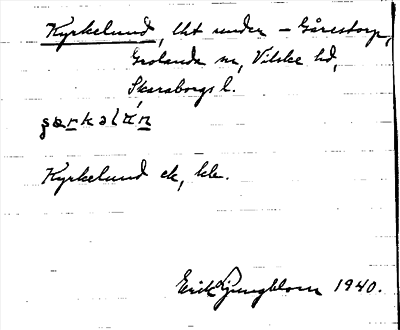 Kyrkelund, lht under – Gårestorp,
Grolanda sn, Vilske hd,
Skaraborgs l.
Kyrkelund ek, kbr.
Erik Ljungblom 1940.